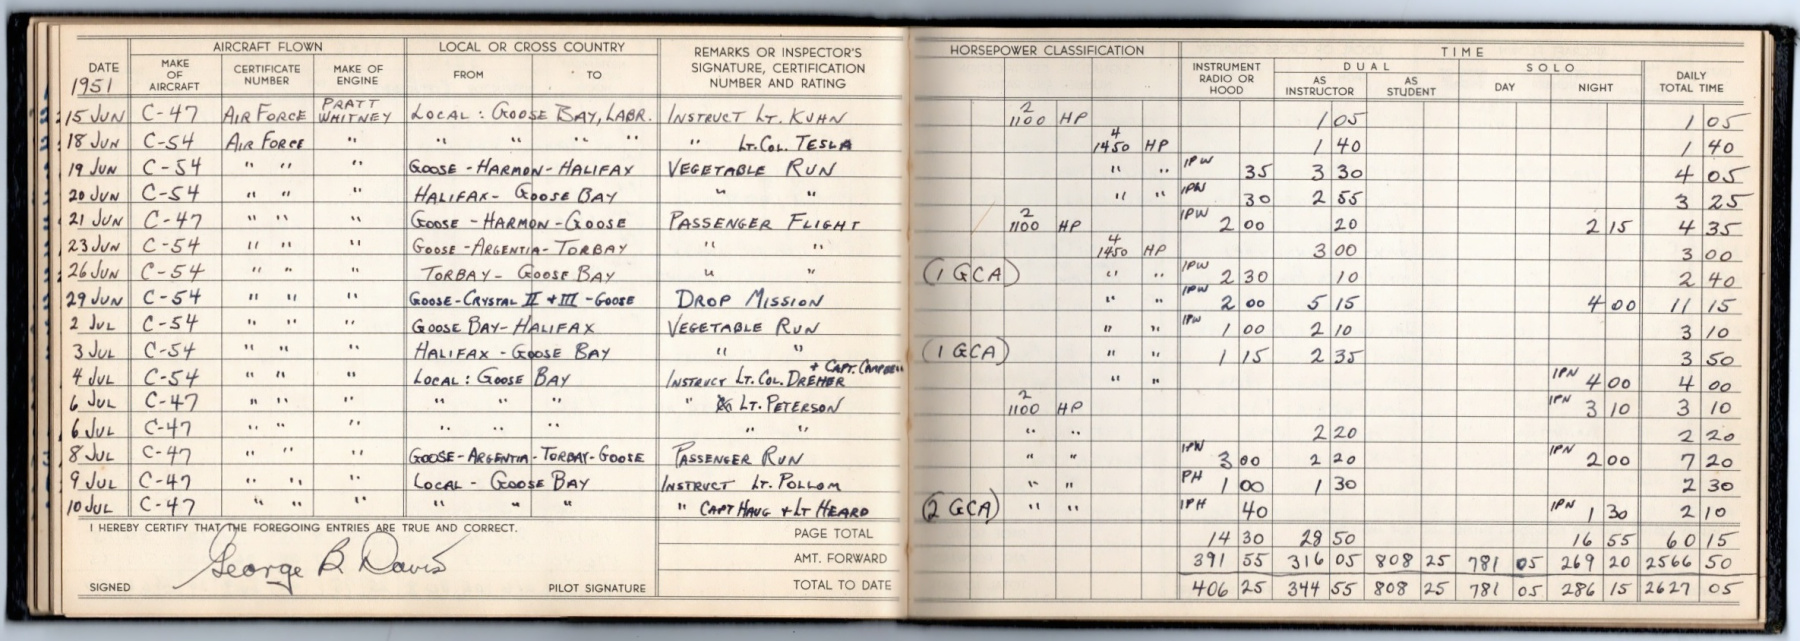 AIRCRAFT FLOWN LOCAL OR CROSS COUNTRY REMARKS OR INSPECTOR'S SIGNATURE, CERTIFICATION NUMBER AND RATING HORSEPOWER CLASSIFICATION TIME
DATE 1951 MAKE OF AIRCRAFT CERTIFICATE NUMBER MAKE OF ENGINE FROM TO INSTRUMENT RADIO OR HOOD DUAL AS INSTRUCTOR AS STUDENT SOLO DAY NIGHT DAILY TOTAL TIME
15 JUN C-47 AIR FORCE PRATT WHITNEY LOCAL: GOOSE BAY, LABR. INSTRUCT LT. KUHN 2 1100 HP 1 05 1 05
18 JUN C-54 AIR FORCE " " " " " " LT. COL. TESLA 4 1450 HP 1 40 1 40
19 JUN C-54 " " " GOOSE - HARMON - HALIFAX VEGETABLE RUN " " IPW 35 3 30 4 05
20 JUN C-54 " " " HALIFAX - GOOSE BAY " " " " IPW 30 2 55 3 25
21 JUN C-47 " " " GOOSE - HARMON - GOOSE PASSENGER FLIGHT 2 1100 HP IPW 2 00 20 2 15 4 35
23 JUN C-54 " " " GOOSE - ARGENTIA - TORBAY " " 4 1450 HP 3 00 3 00
26 JUN C-54 " " " TORBAY - GOOSE BAY " " (1 GCA) " " IPW 2 30 10 2 40
29 JUN C-54 " " " GOOSE - CRYSTAL II + III - GOOSE DROP MISSION " " IPW 2 00 5 15 4 00 11 15
2 JUL C-54 " " " GOOSE BAY - HALIFAX VEGETABLE RUN " " IPW 1 00 2 10 3 10
3 JUL C-54 " " " HALIFAX - GOOSE BAY " " (1 GCA) " " 1 15 2 35 3 50
4 JUL C-54 " " " LOCAL: GOOSE BAY INSTRUCT LT. COL. DREHER + CAPT. CAMPBELL " " IPN 4 00 4 00
6 JUL C-47 " " " " " " " LT. PETERSON 2 1100 HP IPN 3 10 3 10
6 JUL C-47 " " " " " " " " " " 2 20 2 20
8 JUL C-47 " " " GOOSE - ARGENTIA - TORBAY - GOOSE PASSENGER RUN " " IPW 3 00 2 20 IPN 2 00 7 20
9 JUL C-47 " " " LOCAL - GOOSE BAY INSTRUCT LT. POLLOM " " PH 1 00 1 30 2 30
10 JUL C-47 " " " " " " " CAPT HAUG + LT HEARD (2 GCA) " " IPH 40 IPN 1 30 2 10
I HEREBY CERTIFY THAT THE FOREGOING ENTRIES ARE TRUE AND CORRECT. PAGE TOTAL 14 30 28 50 16 55 60 15
George B. Davis AMT. FORWARD 391 55 316 05 808 25 781 05 269 20 2566 50
SIGNED PILOT SIGNATURE TOTAL TO DATE 406 25 344 55 808 25 781 05 286 15 2627 05